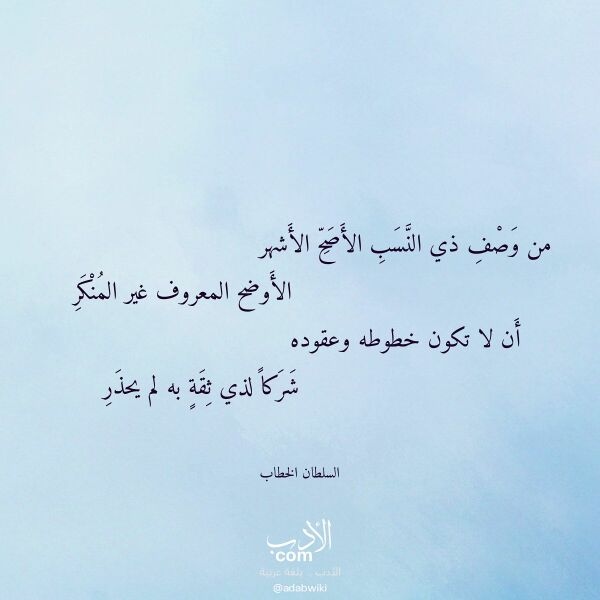 من وَصْفِ ذي النَّسَبِ الأَصَحِّ الأَشهر
الأَوضح المعروف غير المُنْكَرِ
أَن لا تكون خطوطه وعقوده
شَرَكاً لذي ثِقَةٍ به لم يحذَرِ
السلطان الخطاب
الأدب
com
الأدب .. بلغة عربية
@adabwiki